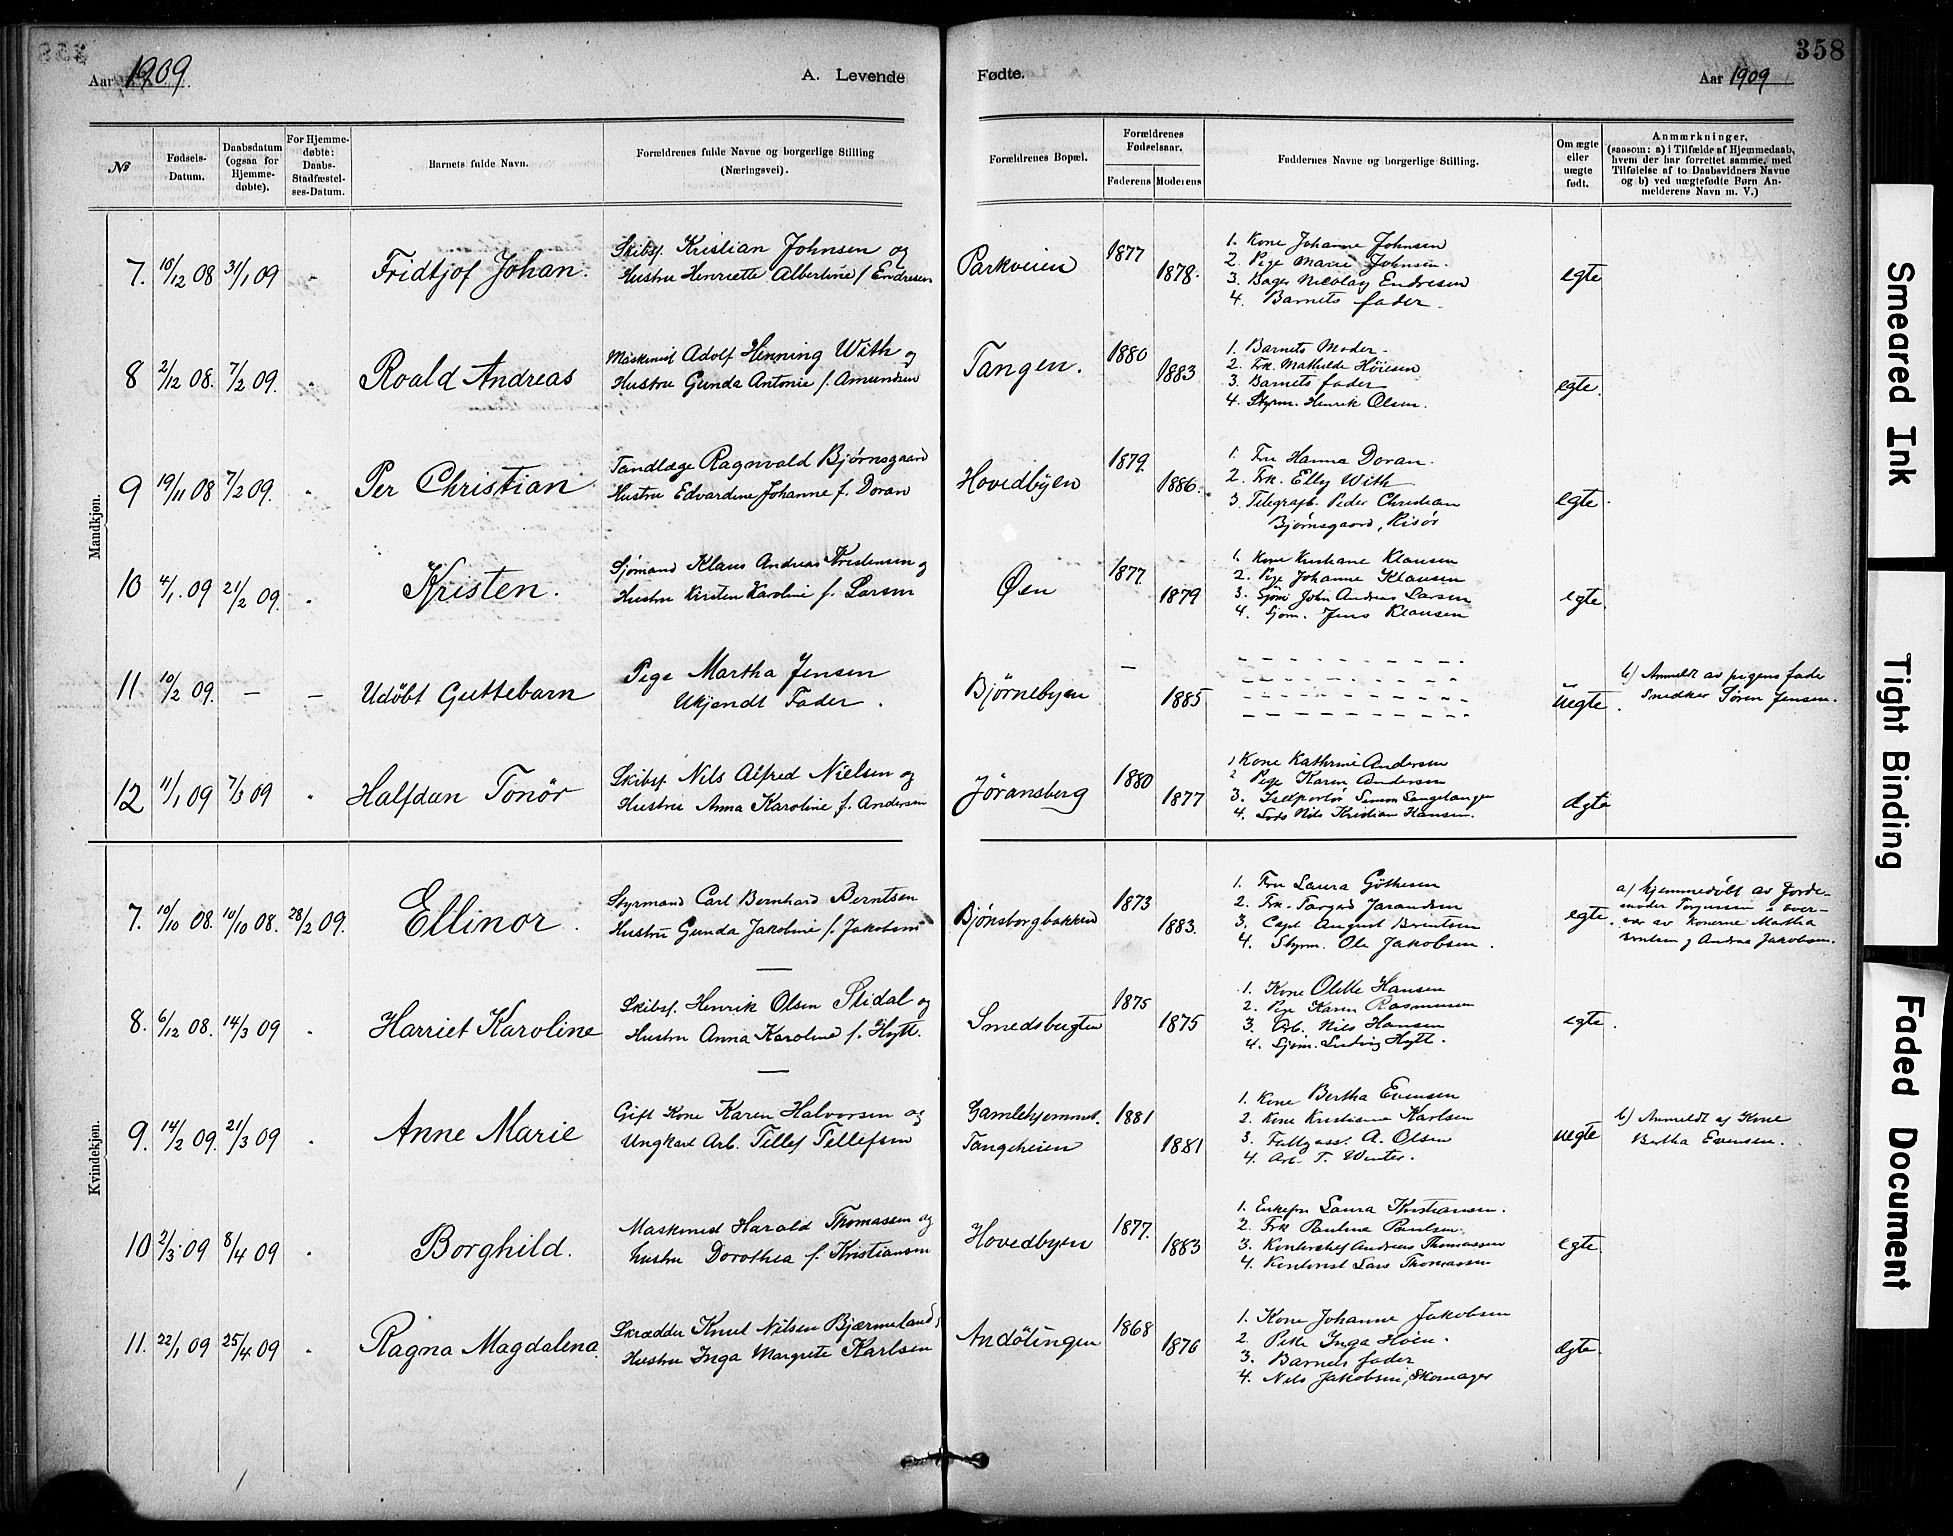 358
Aar 1909.
A. Levende
Fødte.
Aar 1909
№
Fødsels-Datum.
Daabsdatum (ogsaa for Hjemmedøbte).
For Hjemmedøbte: Daabs-Stadfæstelses-Datum.
Barnets fulde Navn.
Forældrenes fulde Navne og borgerlige Stilling (Næringsvei).
Forældrenes Bopæl.
Forældrenes Fødselsaar.
Faderens
Moderens
Faddernes Navne og borgerlige Stilling.
Om ægte eller uægte født.
Anmærkninger,
(saasom: a) i Tilfælde af Hjemmedaab, hvem der har forrettet samme, med Tilføielse af to Daabsvidners Navne og b) ved uægtefødte Børn Anmelderens Navn m. V.)
Mandkjøn.
7. 10/12 08 31/1 09 Fridtjof Johan.
Skibsf. Kristian Johnsen og
Hustru Henriette Albertine f. Endresen
Parkveien 1877 1878.
1. Kone Johanne Johnsen
2. Pige Marie Johnsen.
3. Bager Nicolay Endresen
4. Barnets fader.
egte
8 2/12 08. 7/2 09. Roald Andreas
Maskinist Adolf Henning With og
Hustru Gunda Antonie f. Amundsen
Tangen. 1880 1883
1. Barnets Moder.
2. Frk. Mathilde Høiesen
3. Barnets fader
4. Styrm. Henrik Olsen.
egte.
9 19/11 08 7/2 09. Per Christian
Tandlæge Ragnvald Bjørnsgaard
Hustru Edvardine Johanne f. Doran
Hovedbyen 1879. 1886.
1. Fru Hanna Doran.
2. Frk. Elly With
3. Telegrafb. Peder Christian
Bjørnsgaard, Risør
egte
10 4/1. 09 21/2 09. Kristen.
Sjømand Klaus Andreas Kristensen og
Hustru Kirsten Karoline f. Larsen
Øen 1877. 1879
1. Kone Kristiane Klausen
2. Pige Johanne Klausen
3. Sjøm John Andreas Larsen
4. Sjøm. Jens Klausen
egte.
11 10/2 09. — — Udøbt Guttebarn
Pige Martha Jensen
Ukjendt Fader.
Bjørnebyen — 1885
uegte.
b) Anmeldt av pigens fader
Snedker Søren Jensen.
12 11/1 09 7/3 09 Halfdan Tonør
Skibsf. Nils Alfred Nielsen og
Hustru Anna Karoline f. Andersen
Jøransberg 1880 1877
1 Kone Kathrine Andersen
2 Pige Karen Andersen
3. Simon Langetangen
4. Lods Nils Kristian Hansen.
ægte
Kvindekjøn.
7. 10/10 08. 10/10 08. 28/2 09. Ellinor.
Styrmand Carl Bernhard Berntsen
Hustru Gunda Jakobine f. Jakobsen
Bjønsborgbakken 1873 1883.
1. Fru Laura Gøthesen
2. Frk. Torgard Jarandsen
3. Capt August Berntsen
4. Styrm. Ole Jakobsen.
egte.
a) hjemmedøbt av Jorde-
moder Torgussen i over-
vær av Konerne Martha
Berntsen og Andrea Jakobsen.
8. 6/12 08. 14/3 09 Harriet Karoline
Skibsf. Henrik Olsen Stidal og
Hustru Anna Karoline f. Hytt.
Smedsbugten 1875 1875
1. Kone Olette Hansen
2. Pige Karen Rasmussen
3. Arb. Nils Hansen
4. Sjøm. Ludvig Hytt.
egte.
9. 14/2 09. 21/3 09 Anne Marie
Gift Kone Karen Halvorsen og
Ungkarl Arb. Tellef Tellefsen
Gamlehjemmet. 1881
Tangeheien 1881
1. Kone Bertha Evensen
2. Kone Kristiane Karlsen
3. A. Olsen
4. Arb. T. Winter.
uegte
b) Anmeldt af Kone
Bertha Evensen.
10 2/3 09 8/4 09 Borghild.
Maskinist Harald Thomassen og
hustru Dorothea f. Kristiansen
Hovedbyen 1877. 1883
1. Enkefru Laura Kristiansen.
2. Frk Pauline Paulsen.
3. Kontorchef Andreas Thomassen
4. Kontorist Lars Thomassen
egte.
11. 22/1 09 25/4 09 Ragna Magdalena.
Skrædder Knut Nilsen Bjærmeland,
Hustru Inga Margrete Karlsen
Andøtingen 1868 1876
1. Kone Johanne Jakobsen
2. Pike Inga Hoien.
3. Barnets fader
4. Nils Jakobsen, Skomager
ægte.
Smeared Ink
Tight Binding
Faded Document